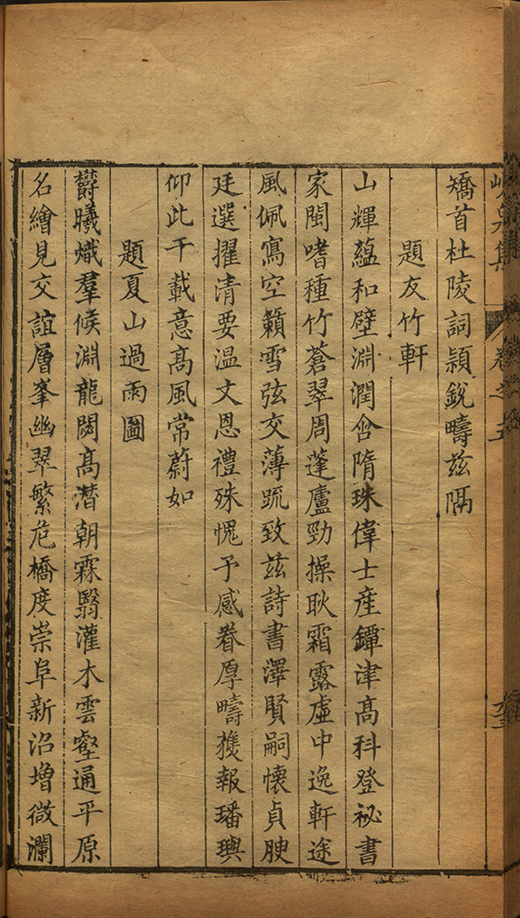 峴泉集 卷之五
矯首杜陵詞穎銳疇茲隅
題友竹軒
山輝蘊和璧淵潤含隋珠偉士産鐔津髙科登祕書
家閩嗜種竹蒼翠周蓬廬勁操耿霜露虛中逸軒途
風佩寫空籟雪弦交薄䟽致茲詩書澤賢嗣懐貞腴
廷選擢清要温文恩禮殊愧予感眷厚疇獲報璠璵
仰此千載意髙風常蔚如
題夏山過雨圖
欝曦熾羣候淵龍閟髙潜朝霖翳灌木雲壑通平原
名繪見交誼層峯幽翠繁危橋度崇阜新沼増微瀾